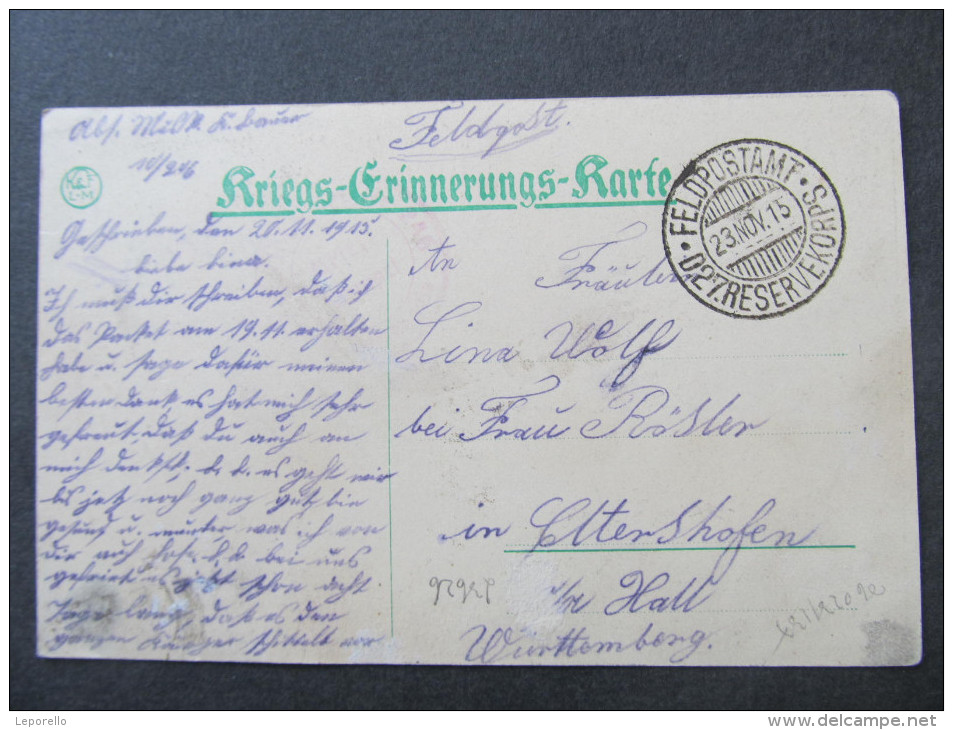 Abs. Musk. K. Bauer
10/246
Feldpost.
Kriegs-Erinnerungs-Karte
FELDPOSTAMT
D. 27. RESERVEKORPS
23. NOV. 15
Geschrieben, den 20.11.1915.
Liebe Lina.
Ich muß dir schreiben, daß ich
das Packet am 19.11. erhalten
habe u. sage dafür meinen
besten Dank, es hat mich sehr
gefreut, daß du auch an
mich denkst. es geht mir
bis jetz noch ganz gut bin
gesund u. munter, was ich von
dir auch hoffe. bei uns
gefriert es jetzt schon acht
Tage lang, daß es den
ganzen Körper schittelt vor
An
Fräulein
Lina Wolf
bei Frau Rösler
in Eltershofen
Hall
Württemberg.
Leporello
http://www.delcampe.net